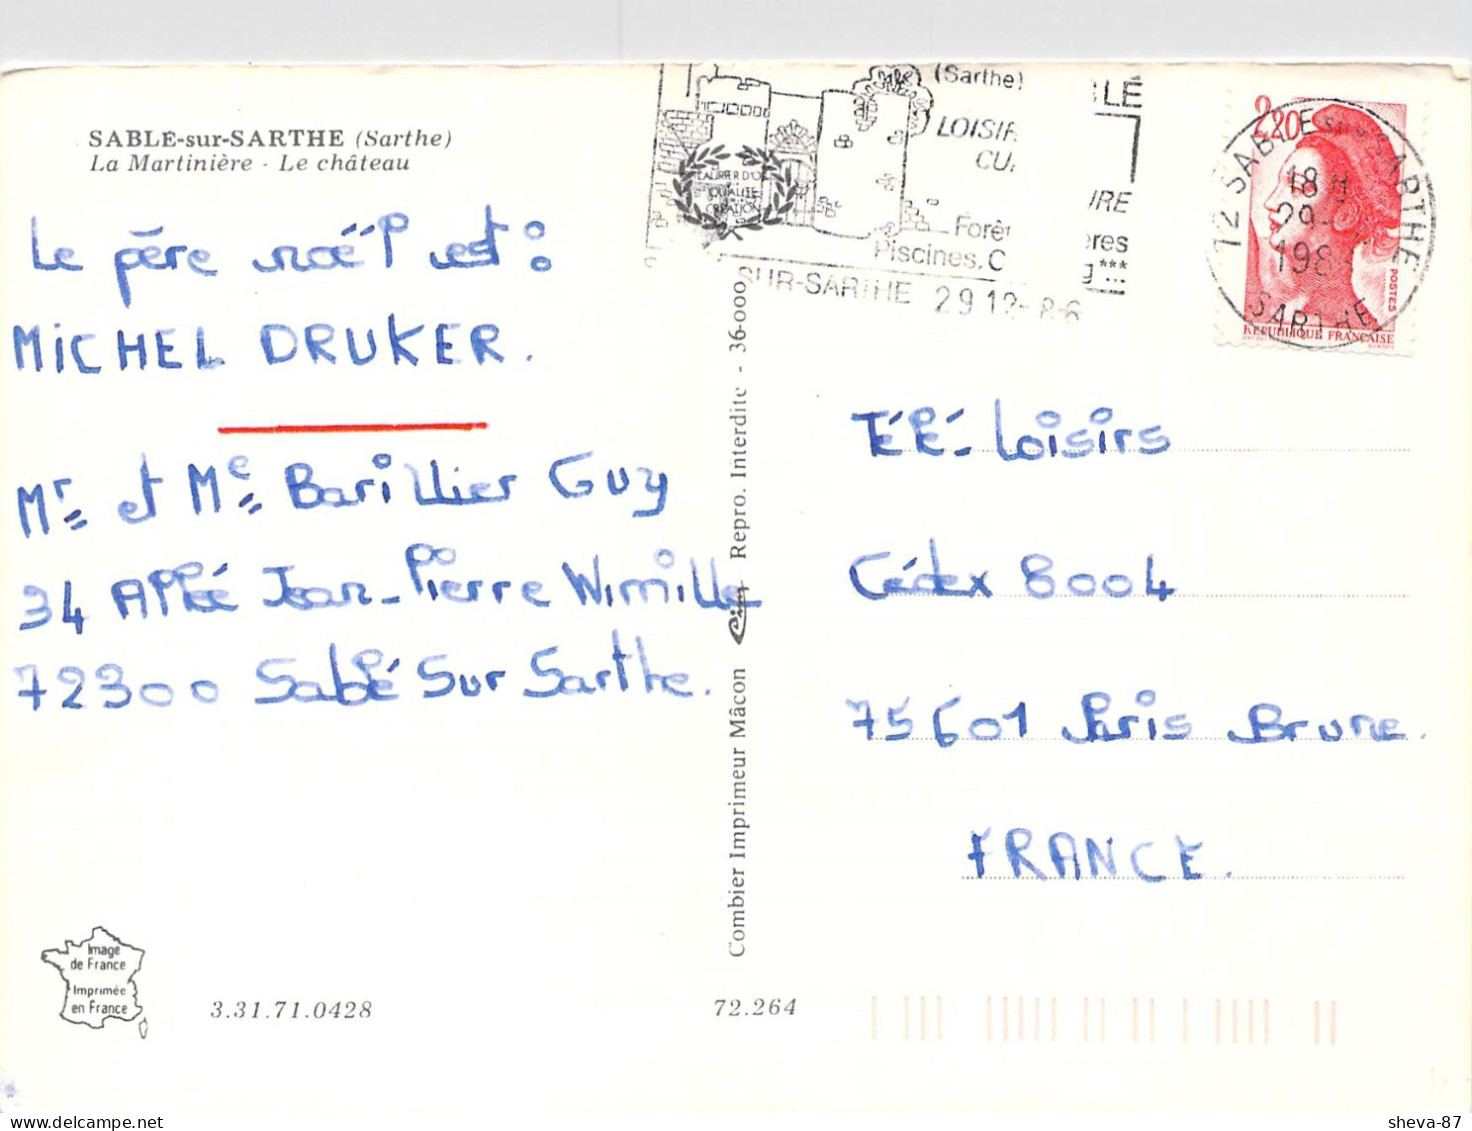 SABLE-sur-SARTHE (Sarthe)
La Martinière - Le château
Le père noël est :
MICHEL DRUKER.
Mr et Me Barillier Guy
34 Allée Jean-Pierre Wimille
72300 Sablé Sur Sarthe.
Image
de France
Imprimée
en France
3.31.71.0428
72.264
Combier Imprimeur Mâcon Cim Repro. Interdite - 36-000
LAURIER D'OR
QUALITÉ
CRÉATION
(Sarthe)
LOISIR
Piscines, C
SUR-SARTHE 29 12- 8-6
2,20
POSTES
REPUBLIQUE FRANÇAISE
72 SABLE SUR SARTHE
18 H
29
198
SARTHE
Télé-Loisirs
Cédex 8004
75601 Paris Brune.
FRANCE.
sheva-87